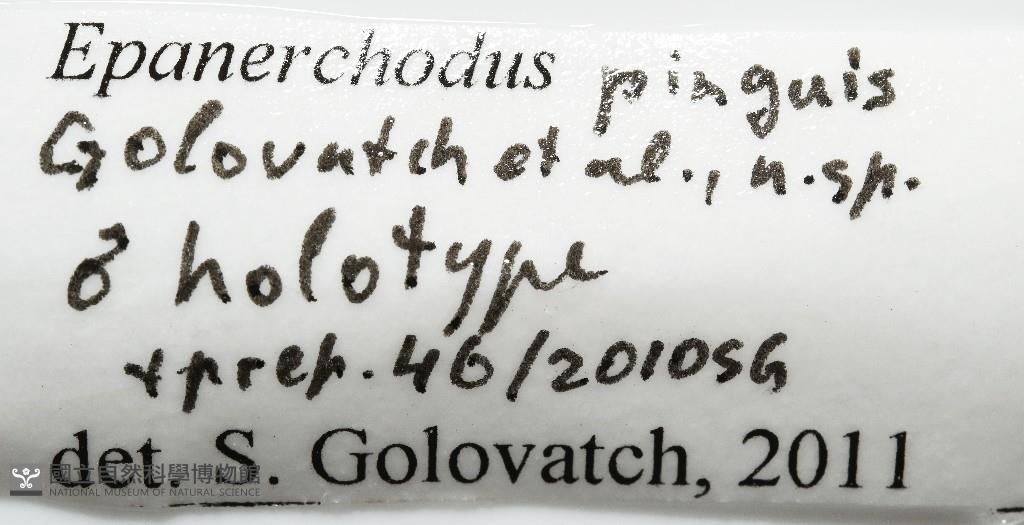 Epanerchodus pinguis
Golovatch et al., n.sp.
♂ holotype
+ prep. 46/2010SG
det. S. Golovatch, 2011
國立自然科學博物館
NATIONAL MUSEUM OF NATURAL SCIENCE